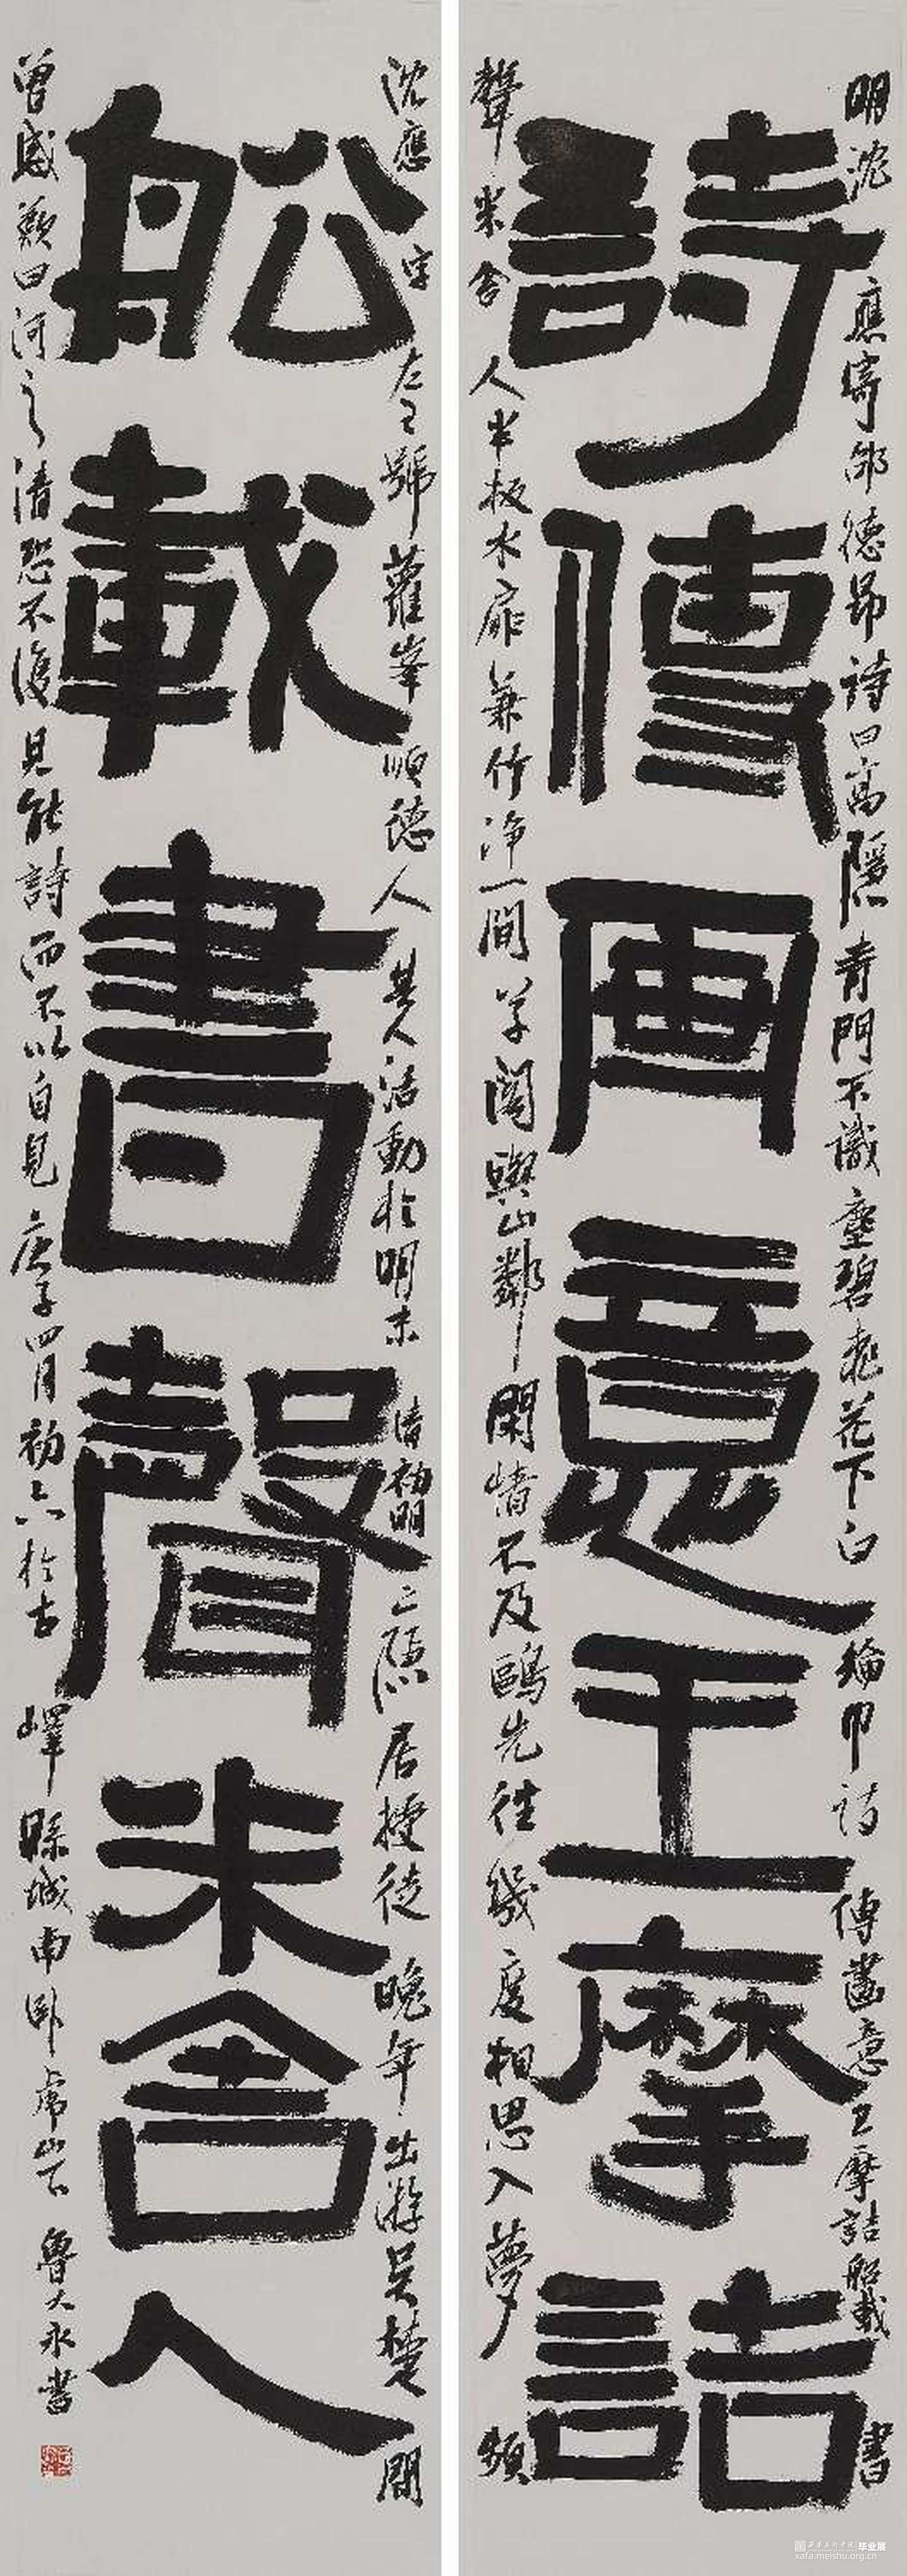 明沈應寄邵德昂詩曰高隱青門不識塵碧桃花下白綸巾詩傳畫意王摩詰船載書
詩傳画意王摩詰
聲米舍人半板水扉兼竹净一間草閣與山鄰閑情不及鷗先往幾度相思入夢頻
沈應字號蘿峯順德人其人活動於明末清初明亡隱居授徒晚年出游吳楚間
舩載書聲米舍人
曾感歎曰河之清恐不復見能詩而不以自見庚子四月初六於古嶧縣城南卧虎山下魯大永書
西安美术学院 毕业展
xafa.meishu.org.cn